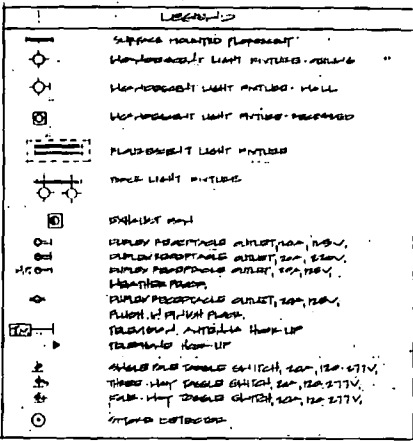 LEGEND
SURFACE MOUNTED FLUORESCENT
INCANDESCENT LIGHT FIXTURE - CEILING
INCANDESCENT LIGHT FIXTURE - WALL
INCANDESCENT LIGHT FIXTURE - RECESSED
FLUORESCENT LIGHT FIXTURE
TRACK LIGHT FIXTURE
EXHAUST FAN
DUPLEX RECEPTACLE OUTLET, 20A, 125V.
DUPLEX RECEPTACLE OUTLET, 20A, 220V.
DUPLEX RECEPTACLE OUTLET, 20A, 125V,
WEATHER PROOF.
DUPLEX RECEPTACLE OUTLET, 20A, 125V,
FLUSH IN FINISH FLOOR.
TV TELEVISION ANTENNA HOOK-UP
TELEPHONE HOOK-UP
SINGLE POLE TOGGLE SWITCH, 20A, 120-277V.
THREE-WAY TOGGLE SWITCH, 20A, 120-277V.
FOUR-WAY TOGGLE SWITCH, 20A, 120-277V.
SMOKE DETECTOR